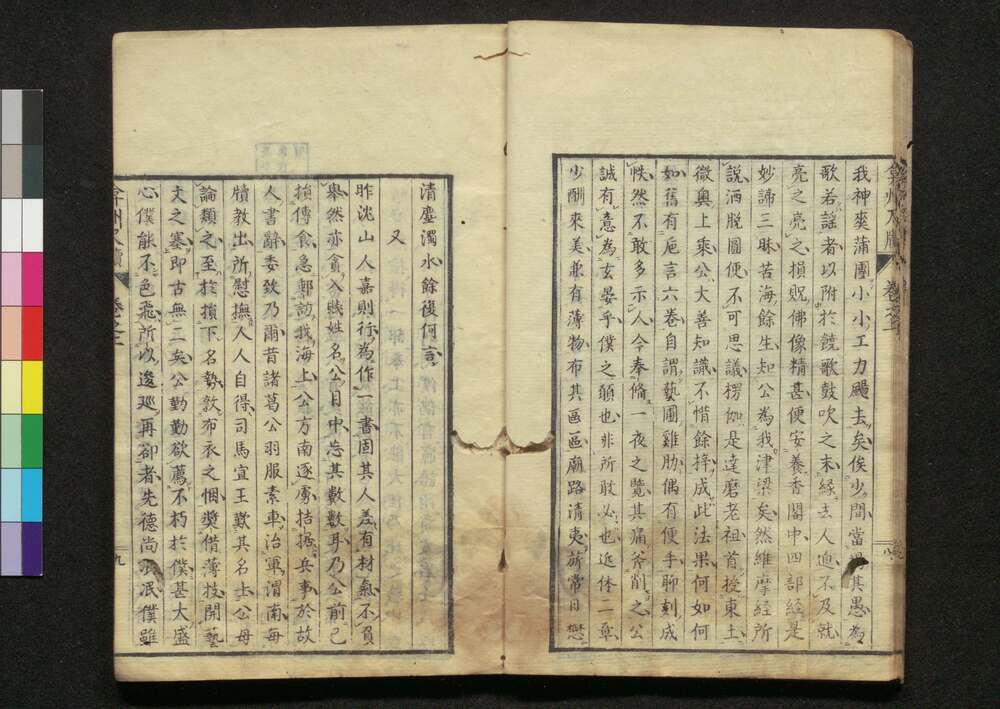 我神爽蒲團小小工力颺去矣俟少間當竭其愚為
歌若謠者以附於鐃歌鼓吹之末緣去人迫不及就
亮之亮之損貺佛像精甚便安養香閣中四部經是
妙諦三昧苦海餘生知公為我津梁矣然維摩經所
說洒脫圓便不可思議楞伽是達磨老祖首授東土
微奧上乘公大善知識不惜餘擇成此法果何如何
如舊有巵言六卷自謂藝圃雞肋偶有便手聊刻成
帙然不敢多示人今奉脩一夜之覽其痛斧削之公
誠有意為玄晏乎僕之願也非所敢必也近体二章
少酬來美兼有薄物布其區區廟路清夷荷常日懋
清塵濁水餘復何言
又
昨沈山人嘉則行為作一書固其人差有材氣不負
舉然亦貪入賤姓名公目中忘其數數耳乃公前已
損傳食急郵訪我海上公方南逐虜拮据兵事於故
人書辭委致乃爾昔諸葛公羽服素車治軍渭南每
牘教出所慰撫人人自得司馬宣王歎其名士公毋
論類之至於損下名埶敦布衣之悃奬借薄技開藝
文之塞即古無二矣公勤勤欲薦不朽於僕甚大盛
心僕能不色飛所以逡巡再卻者先德尚泯泯僕雖
弇州尺牘
卷之二
九